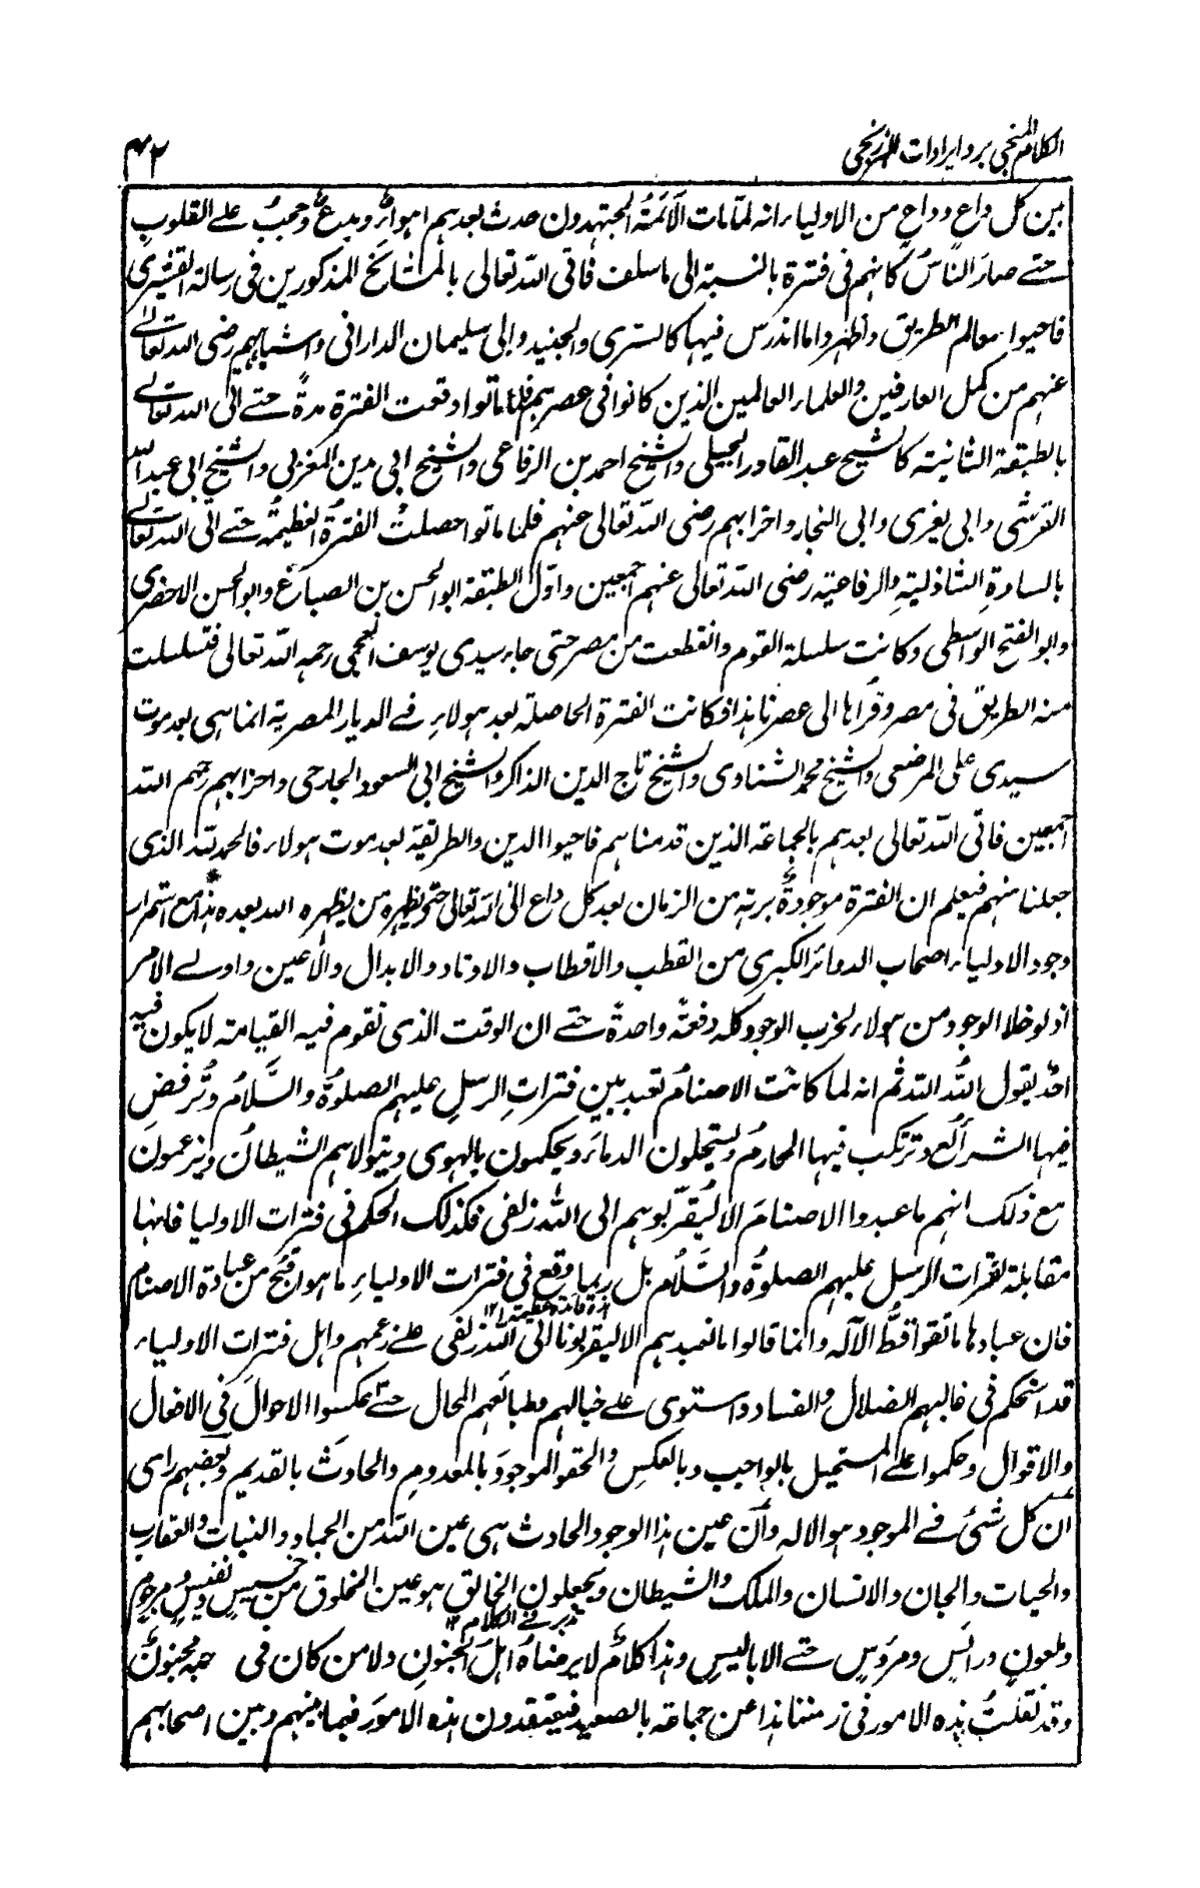 الكلام المنجي برد ايرادات البرزنجي
٤٢
بين كل داع وداع من الاولياء انه لمّا مات الائمة المجتهدون حدث بعدهم اهواءٌ وبدعٌ وحجبٌ على القلوب
حتى صار الناسُ كانهم فى فترة بالنسبة الى ما سلف فاتى الله تعالى بالمشائخ المذكورين فى رسالة القشيرى
فاحيوا معالم الطريق واظهروا ما اندرس فيها كالتسترى والجنيد وابى سليمان الدارانى واشباههم رضى الله تعالى
عنهم من كمل العارفين والعلماء العالمين الذين كانوا فى عصرهم فلما ماتوا وقعت الفترة مدةً حتى اتى الله تعالى
بالطبقة الثانية كالشيخ عبد القادر الجيلى والشيخ احمد بن الرفاعى والشيخ ابى مدين المغربى والشيخ ابى عبد الله
القرشى وابى يغرى وابى النجار واحزابهم رضى الله تعالى عنهم فلما ماتوا حصلت الفترة العظيمة حتى اتى الله تعالى
بالسادةِ الشاذلية والرفاعية رضى الله تعالى عنهم اجمعين واوّل الطبقة ابو الحسن بن الصباغ وابو الحسن الاخضرى
وابو الفتح الواسطى وكانت سلسلة القوم وانقطعت من مصر حتى جاء سيدى يوسف العجمى رحمه الله تعالى فتسلسلت
منه الطريق فى مصر وقراها الى عصرنا هذا فكانت الفترة الحاصلة بعد هولاء فى الديار المصرية انما هى بعد موت
سيدى على المرصفى والشيخ محمد الشناوى والشيخ تاج الدين الذاكر والشيخ ابى السعود الجارحى واحزابهم رحمهم الله
اجمعين فاتى الله تعالى بعدهم بالجماعة الذين قدمناهم فاحيوا الدين والطريقة بعد موت هولاء فالحمد لله الذى
جعلنا منهم فيعلم ان الفترة موجودةٌ برتبة من الزمان بعد كل داع الى الله تعالى حتى يظهره من يظهره الله بعده هذا مع استمرار
وجود الاولياء اصحاب الدوائر الكبرى من القطب والاقطاب والاوتاد والابدال والاعين واولى الامر
اذ لو خلا الوجود من هولاء لخرب الوجود كله دفعةً واحدةً حتى ان الوقت الذى تقوم فيه القيامة لا يكون فيه
احدٌ يقول الله الله ثم انه لما كانت الاصنامُ تعبد بين فتراتِ الرسلِ عليهم الصلوةُ والسَّلامُ وتُرفض
فيها الشرائع وترتكب فيها المحارمُ ويستحلون الدماءَ ويحكمون بالهوى ويتولاهم الشيطانُ ويزعمون
مع ذلك انهم ما عبدوا الاصنامَ الا ليُقرّبوهم الى الله زلفى فكذلك الحكم فى فترات الاوليا فانها
مقابلة لفترات الرسل عليهم الصلوةُ والسَّلامُ بل ربما وقع فى فترات الاولياءِ ما هو اقبح من عبادة الاصنام
فان عبادها ما نقوا قطُّ الآله وانما قالوا ما نعبدهم الا ليقربونا الى الله زلفى على زعمهم واهل فترات الاولياء
قد استحكم فى غالبهم الضلال والفساد واستوى على خيالهم وطبائعهم المحال حتى عكسوا الاحوالَ فى الافعال
والاقوال وحكموا على المستحيل بالواجب وبالعكس والحقوا الموجودَ بالمعدومِ والحادثَ بالقديم وبعضهم راى
ان كل شئ فى الموجود هو الاله وأن عين هذا الوجود الحادث هى عين الله من الجماد والنبات والعقارب
والحيات والجان والانسان والملك والشيطان ويجعلون الخالق هو عين المخلوق من خسيسٍ ونفيسٍ ومرجومٍ
وملعونٍ ورائسٍ ومرءوسٍ حتى الاباليسِ وهذا كلامٌ لا يرضاه اهلُ الجنونِ ولا من كان فى جبه مجنونٌ
وقد نقلتُ هذه الامور فى زمننا هذا عن جماعة بالصعيد فيعتقدون هذه الامورَ فيما بينهم وبين اصحابهم